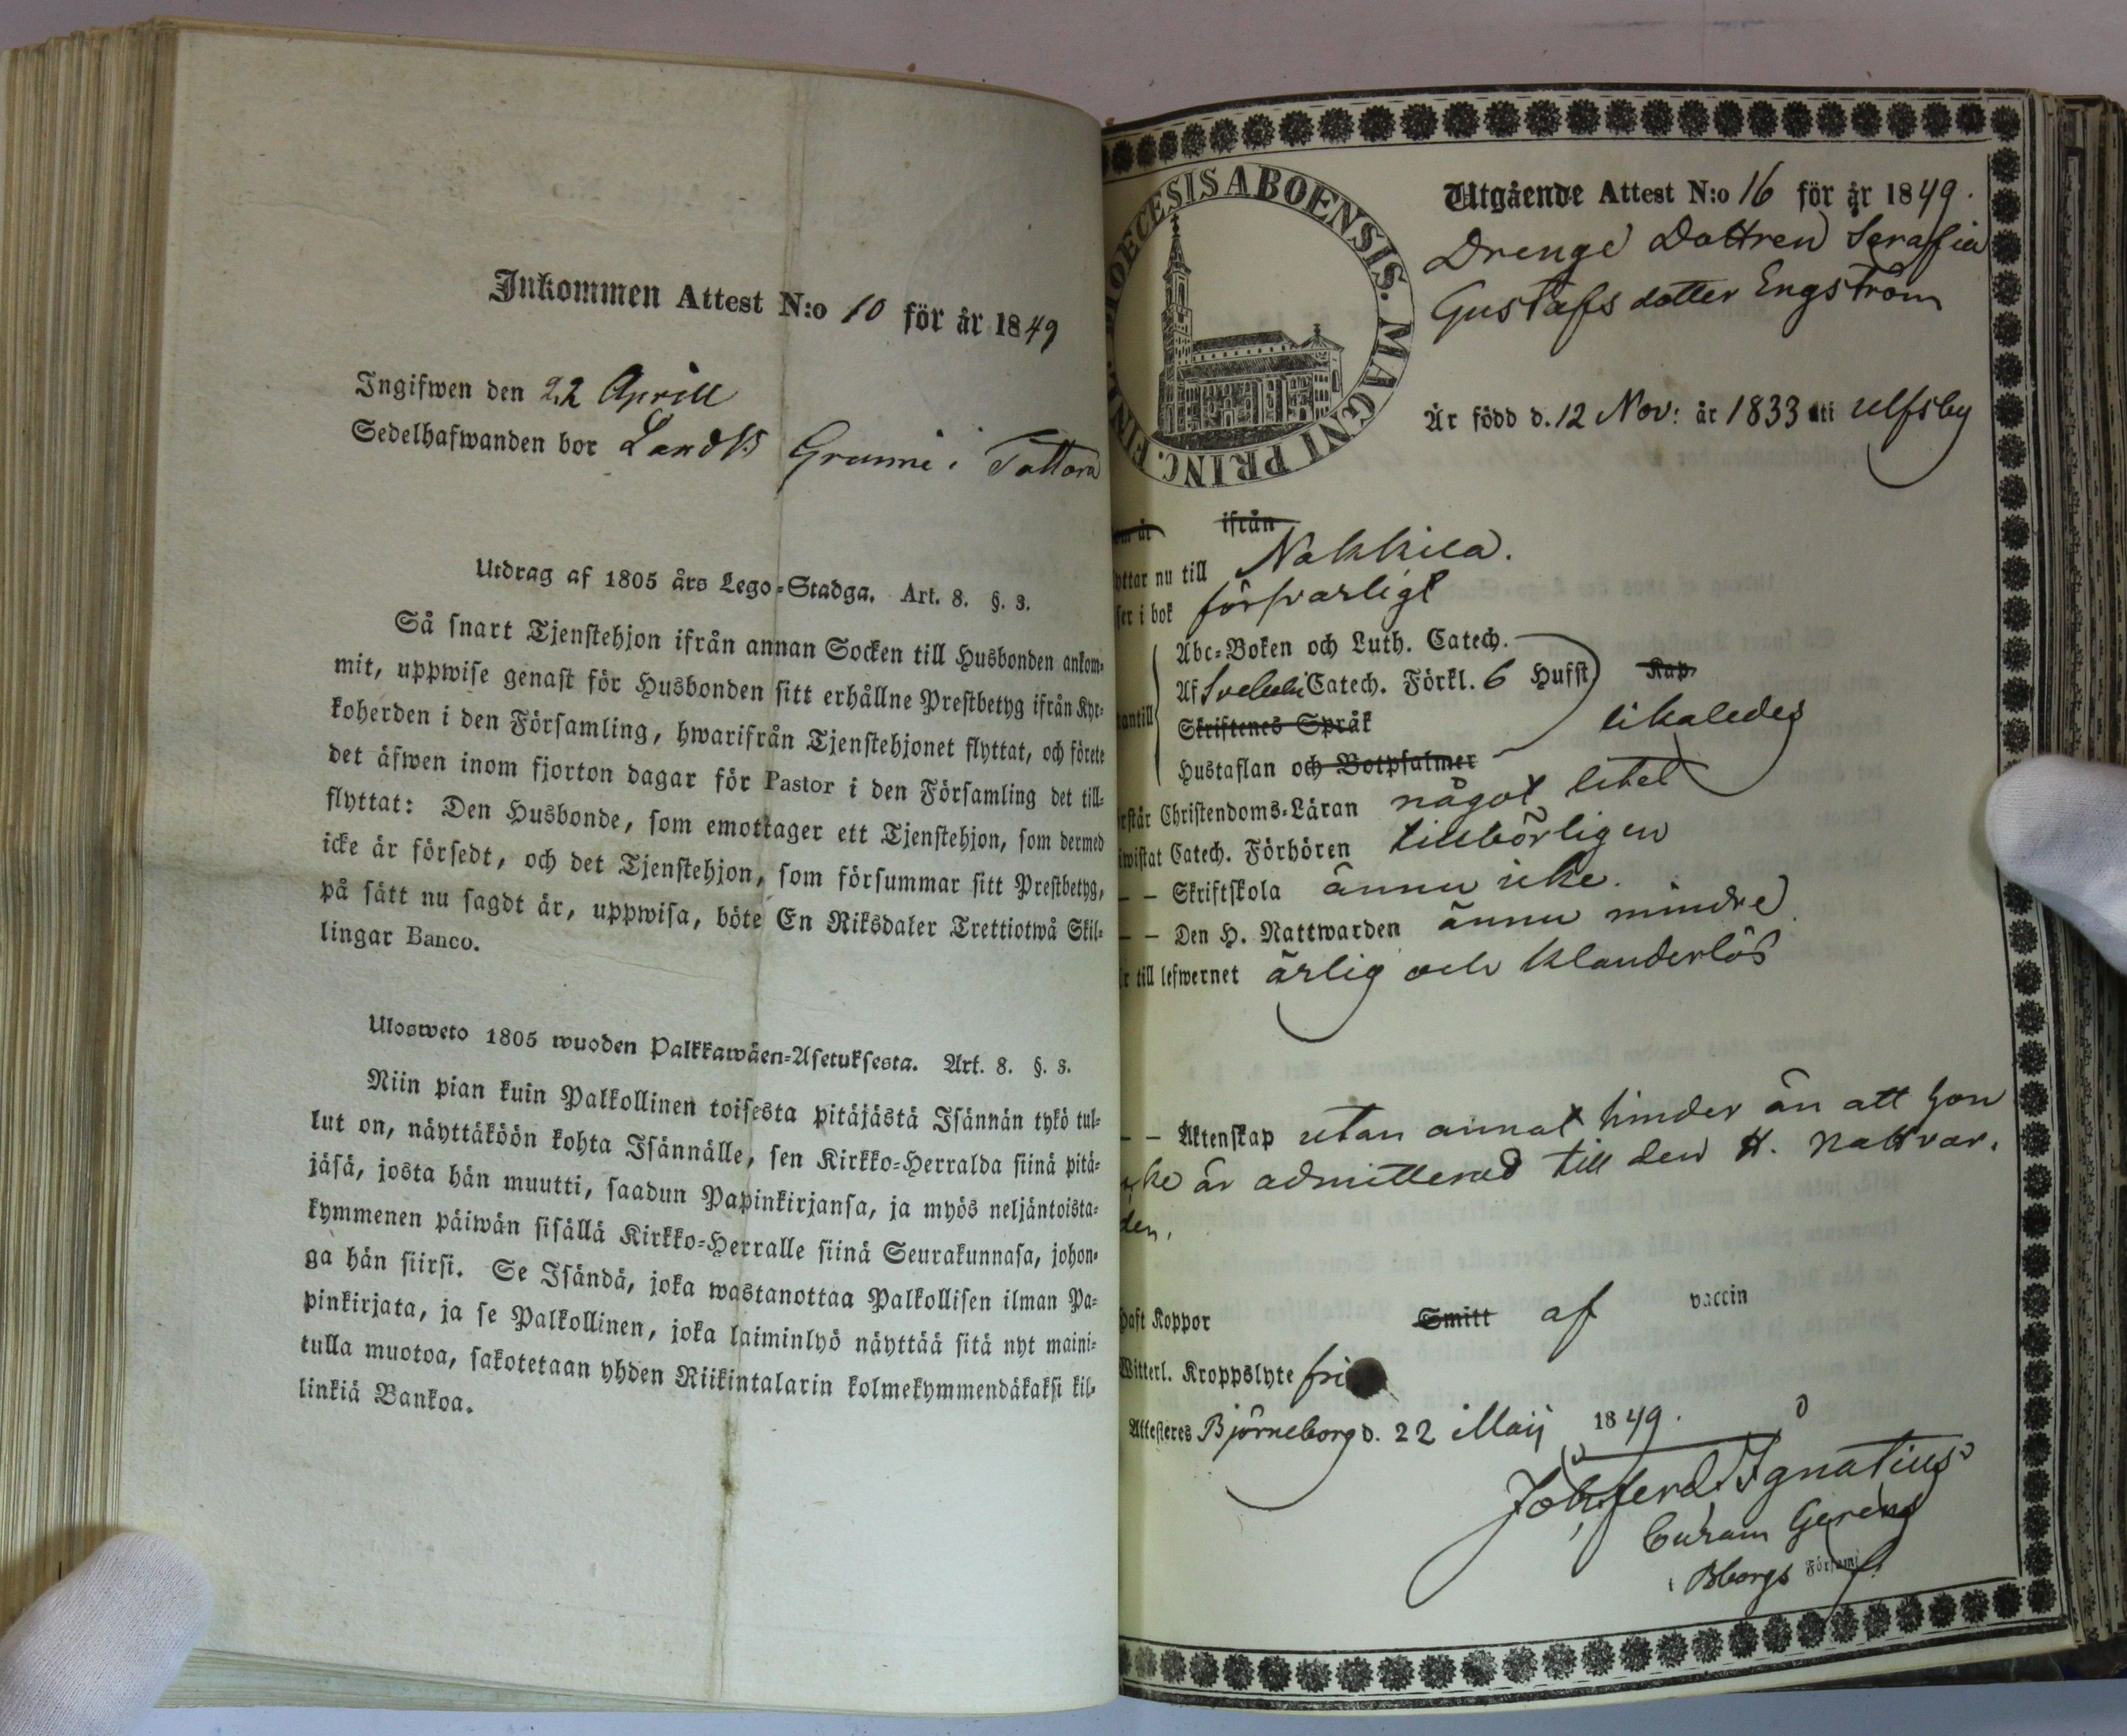 Inkommen Attest N:o 10 för år 1849
Ingifwen den 22 Aprill
Sedelhafwanden bor i Tattara
Utdrag af 1805 års Lego-Stadga. Art. 8. §. 3.
Så snart Tjenstehjon ifrån annan Socken till Husbonden ankom-
mit, uppwise genast för Husbonden sitt erhållne Prestbetyg ifrån Kyr-
koherden i den Församling, hwarifrån Tjenstehjonet flyttat, och förete
det äfwen inom fjorton dagar för Pastor i den Församling det till-
flyttat: Den Husbonde, som emottager ett Tjenstehjon, som dermed
icke är försedt, och det Tjenstehjon, som försummar sitt Prestbetyg,
på sätt nu sagdt är, uppwisa, böte En Riksdaler Trettiotwå Skil-
lingar Banco.
Ulosweto 1805 wuoden Palkkawäen-Asetuksesta. Art. 8. §. 3.
Niin pian kuin Palkollinen toisesta pitäjästä Isännän tykö tul-
lut on, näyttäköön kohta Isännälle, sen Kirkko-Herralda siinä pitä-
jäsä, josta hän muutti, saadun Papinkirjansa, ja myös neljäntoista-
kymmenen päiwän sisällä Kirkko-Herralle siinä Seurakunnasa, johon-
ga hän siirsi. Se Isändä, joka wastanottaa Palkollisen ilman Pa-
pinkirjata, ja se Palkollinen, joka laiminlyö näyttää sitä nyt maini-
tulla muotoa, sakotetaan yhden Riikintalarin kolmekymmendäkaksi kil-
linkiä Bankoa.
DIOECESIS ABOENSIS. MAGNI PRINC. FINL.
Utgående Attest N:o 16 för år 1849.
Drenge Dottren Serafia
Gustafs dotter Engström
Är född d. 12 Nov: år 1833 uti Ulfsby
är ifrån
yttar nu till Nakkila.
ser i bok försvarligt
Abc-Boken och Luth. Catech.
Af Svebelii Catech. Förkl. 6 Hufst Kap
antill Skriftenes Språk likaledes
Hustaflan och Botpsalmer
rstår Christendoms-Läran något litet
iwistat Catech. Förhören tillbörligen
– – Skriftskola ännu icke.
– – Den H. Nattwarden ännu mindre
r till lefwernet ärlig och klanderlös
– – Äktenskap utan annat hinder än att hon
icke är admitterad till den H. Nattvar-
den.
Haft Koppor Smitt af vaccin
Witterl. Kroppslyte fri
Attesteres Björneborg d. 22 Maij 1849.
Joh. Ferd. Ignatius
Curam Gerens
i Bborgs Församl.